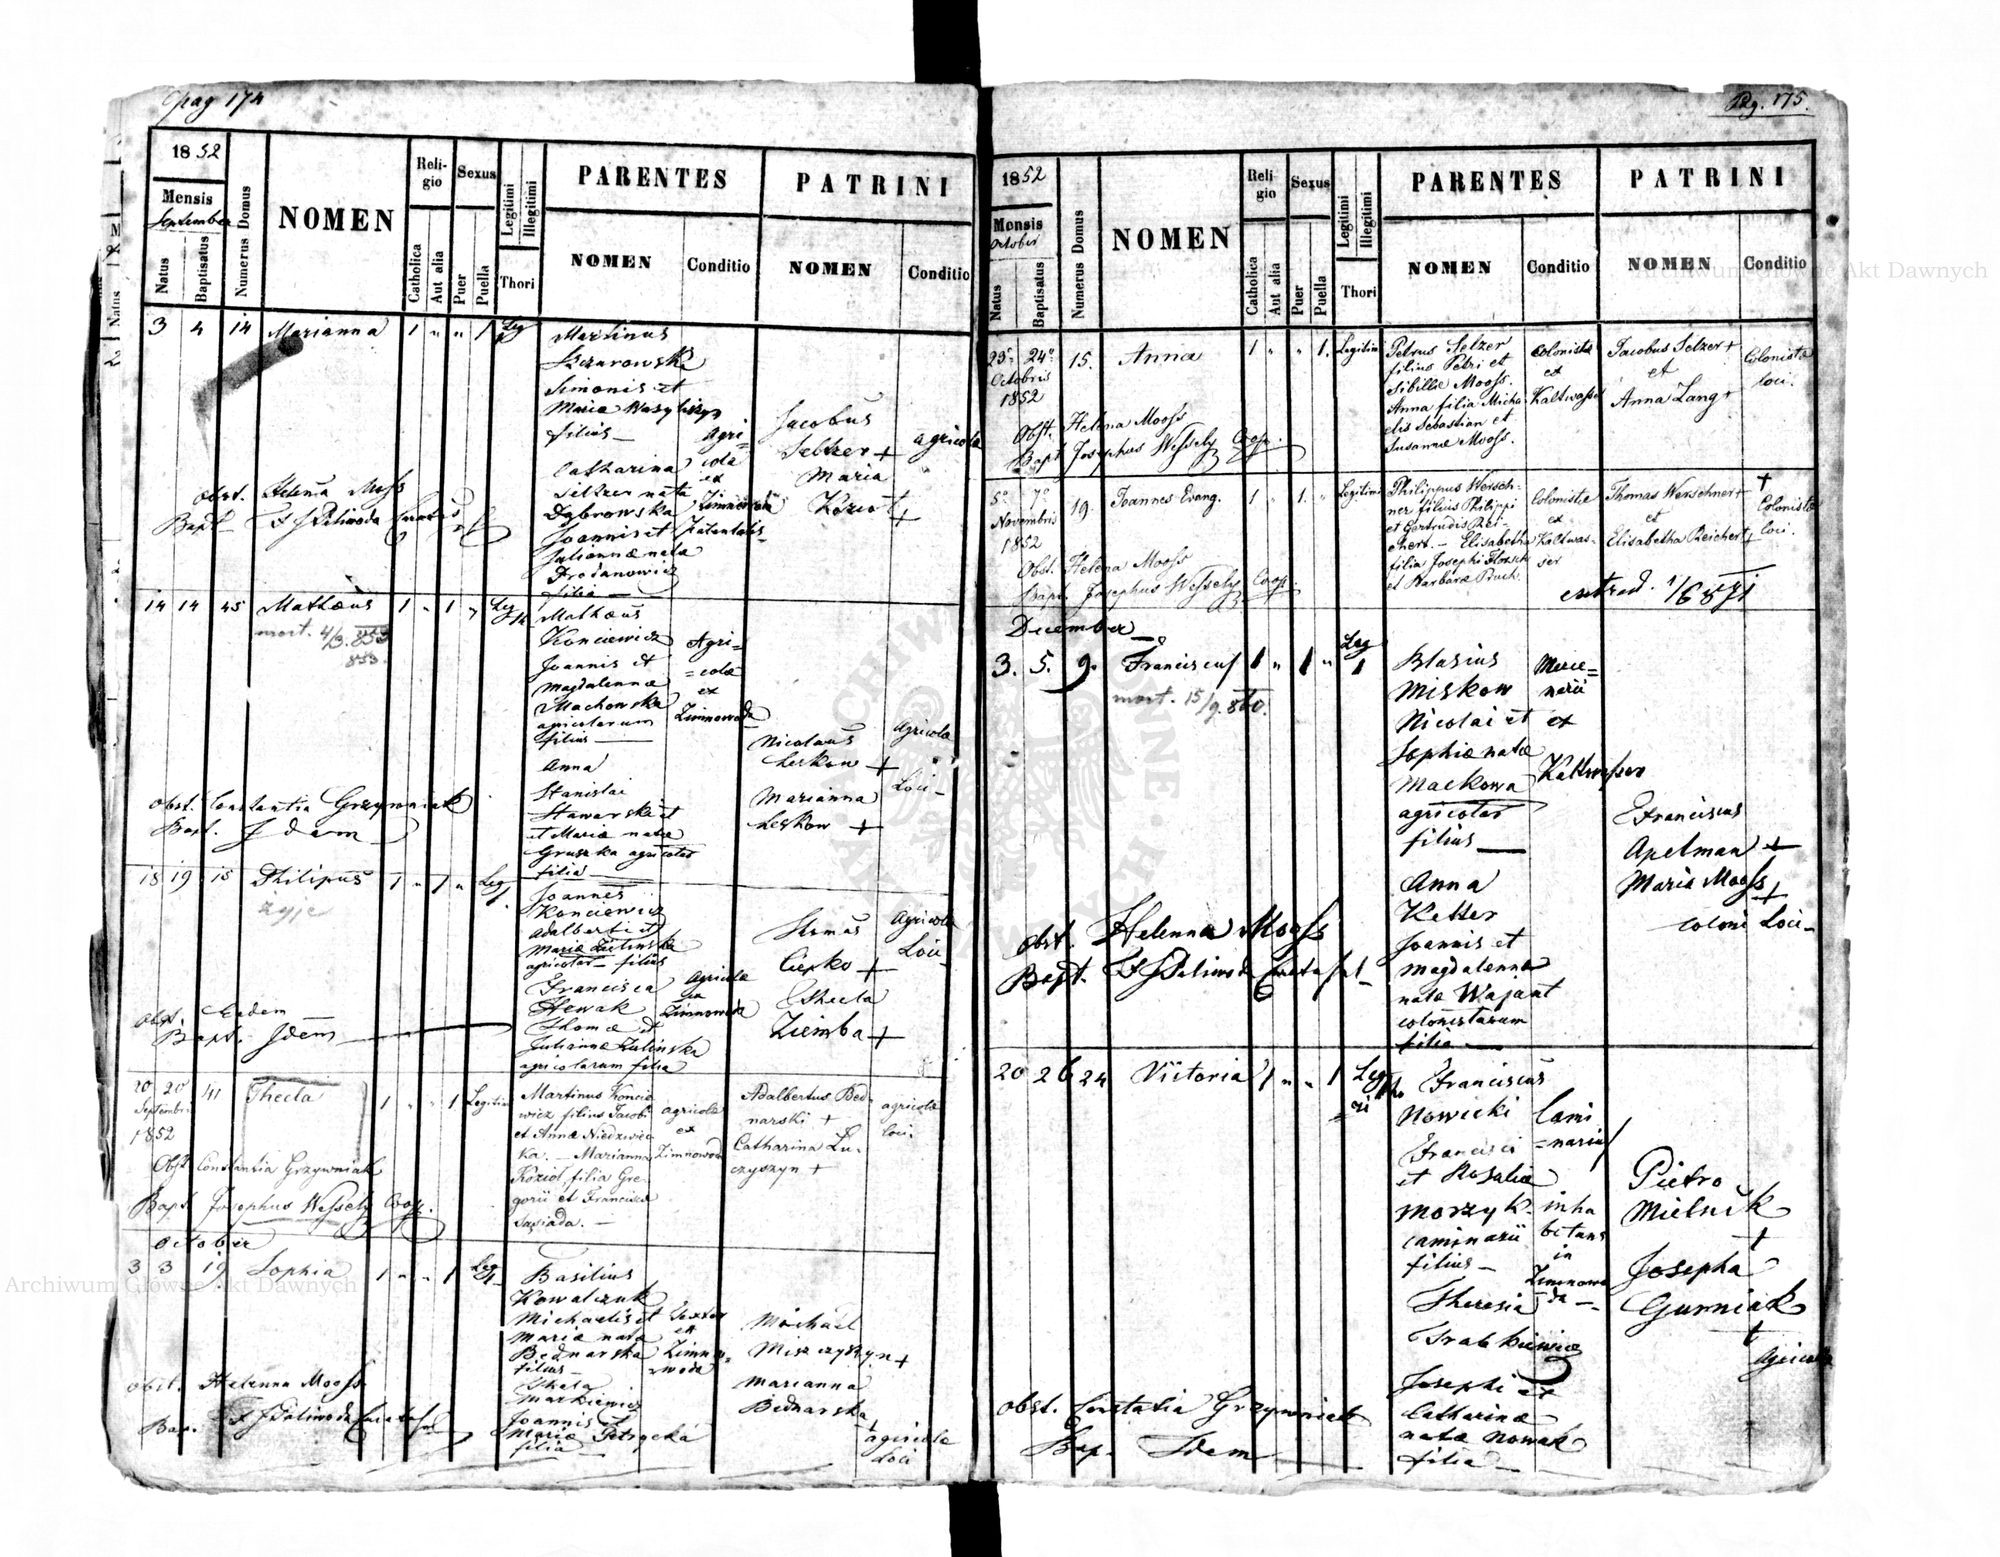 pag 174
1852
Mensis
September
Natus
Baptisatus
Numerus Domus
NOMEN
Religio
Catholica
Aut alia
Sexus
Puer
Puella
Legitimi
Illegitimi
Thori
PARENTES
NOMEN
Conditio
PATRINI
NOMEN
Conditio
3 4 14 Marianna 1 " " 1 Leg
Martinus
Simonis et
Maria
filius —
Catharina
Seltzer nata
Dąbrowska
Joannis et
Julianna nata
filia —
Agri-
cola
ex
Jacobus
Seltzer +
Maria
Kozioł +
agricola
Obst. Helena Moss
Bapt. Curatus
14 14 45 Mathæus 1 " 1 " Leg
mort. 4/3. 853
853.
Mathæus
Konciewicz
Joannis et
Magdalennæ
Machowska
agricolarum
filius —
Anna
Stanislai
Stawarski et
et Maria nata
Gruszka agricolar
filia —
Agri=
=cola
ex
Zimnowoda
Nicolaus
Leskow +
Marianna
Leskow +
Agricolæ
Loci -
Obst. Constantia Grzywniak
Bapt. Idem
18 19 15 Philipus 1 " 1 " Leg
żyje
Joannes
Konciewicz
Adalberti et
Maria Zielinska
agricolar - filius
Francisca
Thomæ et
Julianna Zulinska
agricolarum filia
Agricola
ex
Zimnowoda
Ciepko +
Thecla
Ziemba +
Agricolæ
Loci -
Obst. Eadem
Bapt. Idem
20 20 41 Thecla 1 " " 1 Legitim
Septembris
1852
Martinus Koncie
wicz filius Jacobi
et Annæ Niedzwiec
ka. - Marianna
Kozioł, filia Gre
gorii et Francisca
Sasiada. —
agricola
ex
Zimnowoda
Adalbertus Bed
narski +
Catharina Lu-
czyszyn +
agricolæ
loci.
Obst. Constantia Grzywniak
Bapt. Josephus Wessely Coop.
October
3 3 19 Sophia 1 " " 1 Leg
Basilius
Kowalczuk
Michaelis et
Maria nata
Bednarska
filius -
Markiewicz
Joannis et
Maria
filia —
Textor
ex
Zimno=
woda
Michael
Misczyszyn +
Marianna
Bednarska +
agricolæ
Loci
Obst. Helenna Mooss
Bap.
Pag. 175.
1852
Mensis
October
Natus
Baptisatus
Numerus Domus
NOMEN
Religio
Catholica
Aut alia
Sexus
Puer
Puella
Legitimi
Illegitimi
Thori
PARENTES
NOMEN
Conditio
PATRINI
NOMEN
Conditio
23ª 24ª 15. Anna 1 " " 1. Legitim
Octobris
1852
Petrus Selzer
filius Petri et
Sibillæ Mooss.
Anna filia Micha-
elis Sebastian et
Susannæ Mooss.
Colonistæ
ex
Kaltwasser
Jacobus Selzer +
et
Anna Lang +
Colonistæ
loci.
Obst. Helena Mooss
Bapt Josephus Wessely Coop.
5ª 7ª 19. Joannes Evang. 1 " 1. " Legitimi
Novembris
1852
Philippus Wersch-
ner filius Philippi
et Gertrudis Rei-
chert. - Elisabetha
filia Josephi
et Barbaræ Buch.
Colonistæ
ex
Kaltwas-
ser
Thomas Werschner +
et
Elisabetha Reichert +
Colonistæ
loci.
extrad. 1/6 871
Obst. Helena Mooss
Bapt. Josephus Wessely Coop.
December
3. 5. 9. Franciscus 1 " 1 " Leg
mort. 15/9. 860.
Blasius
Miskow
Nicolai et
Sophiæ natæ
Mackowa
agricolar
filius —
Anna
Ketter
Joannis et
Magdalenna
nata Wajant
colonistarum
filia —
Merce=
narii
ex
Kaltwasser
Franciscus
Apelman +
Maria Mooss +
coloni Loci -
Obst. Helenna Mooss
Bapt.
20 26 24 Victoria 1 " " 1 Leg
Franciscus
Nowicki
Francisci
et Rosaliæ
Morzyk
caminarii
filius -
Theresia
Josephi et
Catharinæ
natæ Nowak
filia —
Cami
=narius
inha
bitans
in
Zimnowo
da —
Pietro
Mielnik
+
Josepha
Gurniak
+
Agricolæ
Obst. Constatia Grzywniak
Bap. Idem
Archiwum Główne Akt Dawnych
Archiwum Główne Akt Dawnych